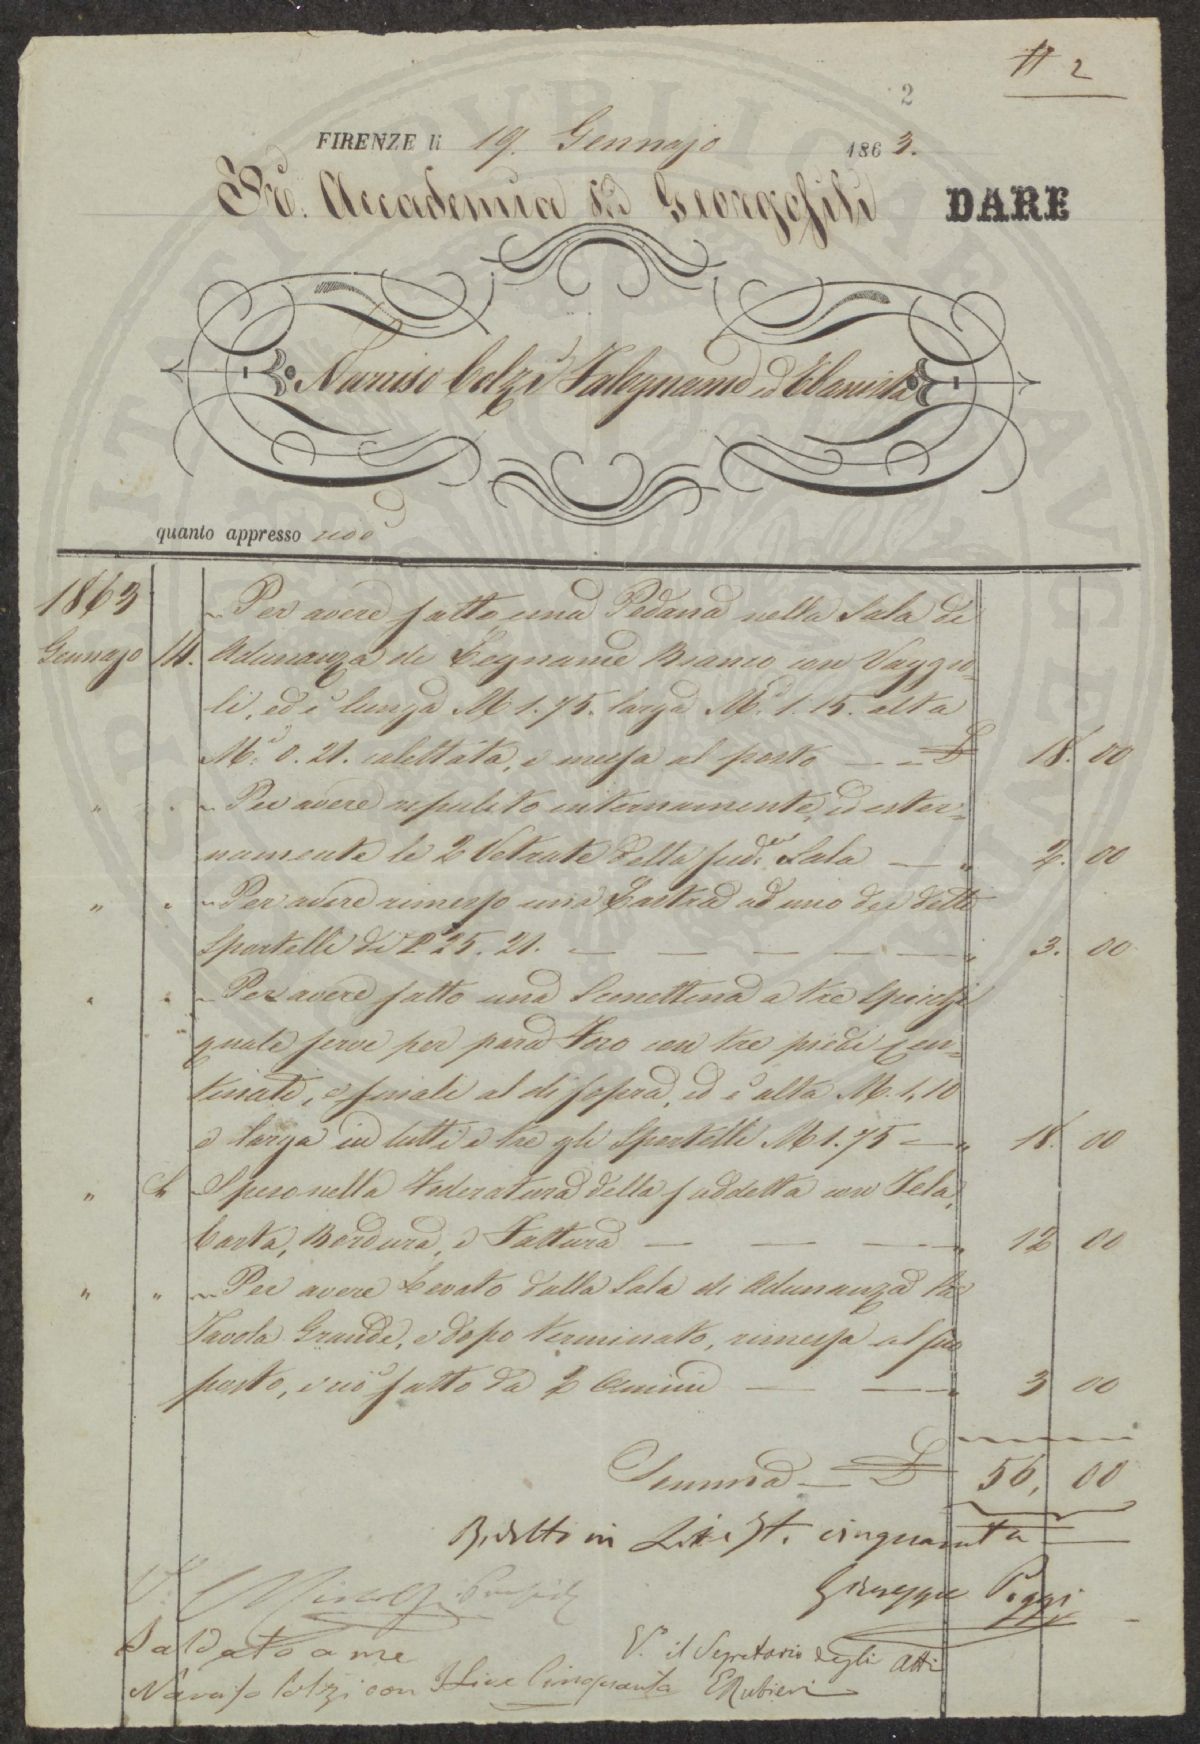 # 2
2
FIRENZE li 19. Gennajo 1863.
R. Accademia dei Georgofili DARE
Narciso Colzi Falegname ed Ebanista
quanto appresso cioè
1863
Gennajo 14. Per avere fatto una Pedana nella Sala di
Adunanza di Legname Bianco con Vaggio-
li, ed è lunga M 1.75. larga M. 1.15. alta
M. 0.21. calettata, e messa al posto — — £ 18. 00
" " Per avere ripulito internamente, ed ester-
namente le 2 Vetrate della sud. Sala — " 2. 00
" " Per avere rimesso una Lastra ad uno dei detti
Sportelli di P 25. 21. — — — — — " 3. 00
" " Per avere fatto una Scenettina a tre Specchj
quale serve per para Foco con tre piedi Cen-
tinati, e finali al di sopra, ed è alta M. 1,10
e larga in tutti e tre gli Sportelli M 1.75 — " 18. 00
" Speso nella Foderatura della suddetta con Tela,
Carta, Bordura, e Fattura — — — — " 12 00
" " Per avere Levato dalla Sala di Adunanza la
Tavola Grande, e dopo terminato, rimessa al suo
posto, e ciò fatto da 2 Uomini — — — " 3 00
Somma — £ 56, 00
Ridotti in Lire It. cinquanta
Giuseppe Poggi
V.
Saldato a me
V. il Segretario degli Atti
Narciso Colzi con Lire Cinquanta
E Rubieri